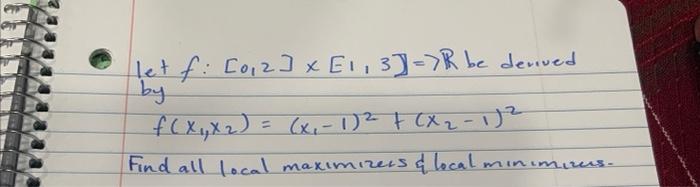 let f: [0,2] x [1,3] => ℝ be derived
by
f(x₁,x₂) = (x₁-1)² + (x₂-1)²
Find all local maximizers & local minimizers.